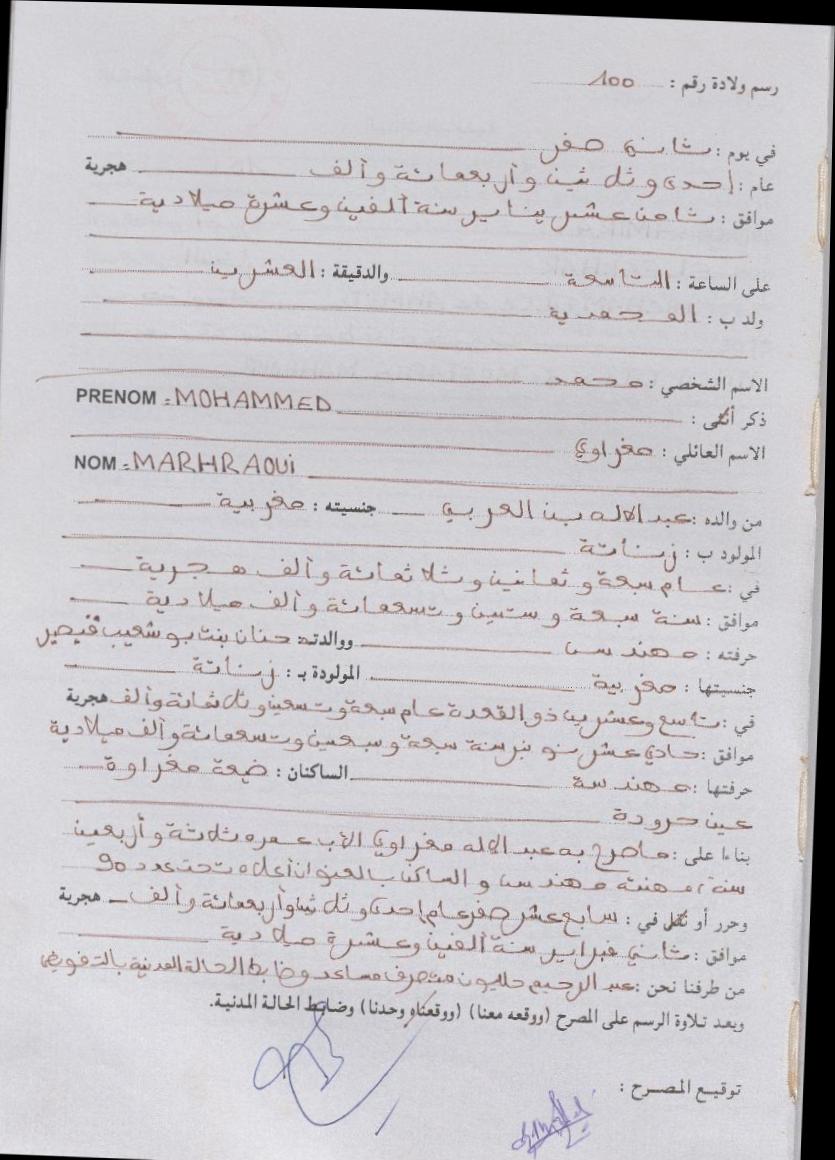 رسم ولادة رقم : 100
في يوم : ثاني صفر
عام : إحدى وثلاثين وأربعمائة وألف هجرية
موافق : ثامن عشر يناير سنة ألفين وعشرة ميلادية
على الساعة : التاسعة والدقيقة : العشرين
ولد ب : المحمدية
الاسم الشخصي : محمد
ذكر أنثى :
PRENOM : MOHAMMED
الاسم العائلي : مغراوي
NOM : MARHRAOUi
من والده : عبد الاله بن العربي جنسيته : مغربية
المولود ب : زناتة
في : عام سبعة وثمانين وثلاثمائة وألف هجرية
موافق : سنة سبعة وستين وتسعمائة وألف ميلادية
حرفته : مهندس ووالدته حنان بنت بوشعيب
جنسيتها : مغربية المولودة بـ : زناتة
في : تاسع وعشرين ذو القعدة عام سبعة وتسعين وثلاثمائة وألف هجرية
موافق : حادي عشر نونبر سنة سبعة وسبعين وتسعمائة وألف ميلادية
حرفتها : مهندسة الساكنان : ضيعة مغراوة
عين حرودة
بناءا على : ما صرح به عبد الاله مغراوي الأب عمره ثلاثة وأربعين
سنة، مهنته مهندس والساكن بالعنوان أعلاه تحت عدد 90
وحرر أو نقل في : سابع عشر صفر عام إحدى وثلاثين وأربعمائة وألف هجرية
موافق : ثاني فبراير سنة ألفين وعشرة ميلادية
من طرفنا نحن : عبد الرحيم متصرف مساعد وضابط الحالة المدنية بالتفويض
وبعد تلاوة الرسم على المصرح (ووقعه معنا) (ووقعناه وحدنا) وضابط الحالة المدنية.
توقيع المصرح :